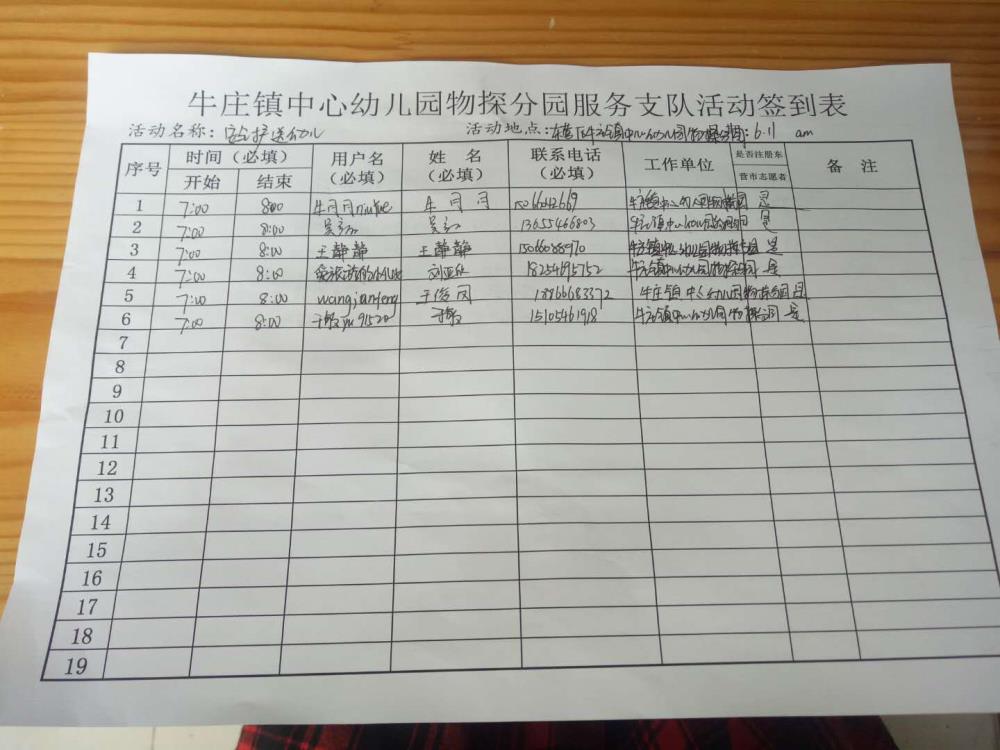 牛庄镇中心幼儿园物探分园服务支队活动签到表
活动名称: 护送幼儿 活动地点: 牛庄镇中心幼儿园物探分园 6.11 am
序号 时间(必填) 用户名(必填) 姓 名(必填) 联系电话(必填) 工作单位 是否注册东营市志愿者 备 注
开始 结束
1 7:00 8:00 牛月月niuyue 牛月月 是
2 7:00 8:00 13655466803 牛庄镇中心幼儿园物探分园 是
3 7:00 8:00 王静静 王静静 15066088970 牛庄镇中心幼儿园物探分园 是
4 7:00 8:00 18254695752 牛庄镇中心幼儿园物探分园 是
5 7:00 8:00 wangjunfeng 王俊凤 18866683372 牛庄镇中心幼儿园物探分园 是
6 7:00 8:00 15105461918 牛庄镇中心幼儿园物探分园 是
7
8
9
10
11
12
13
14
15
16
17
18
19